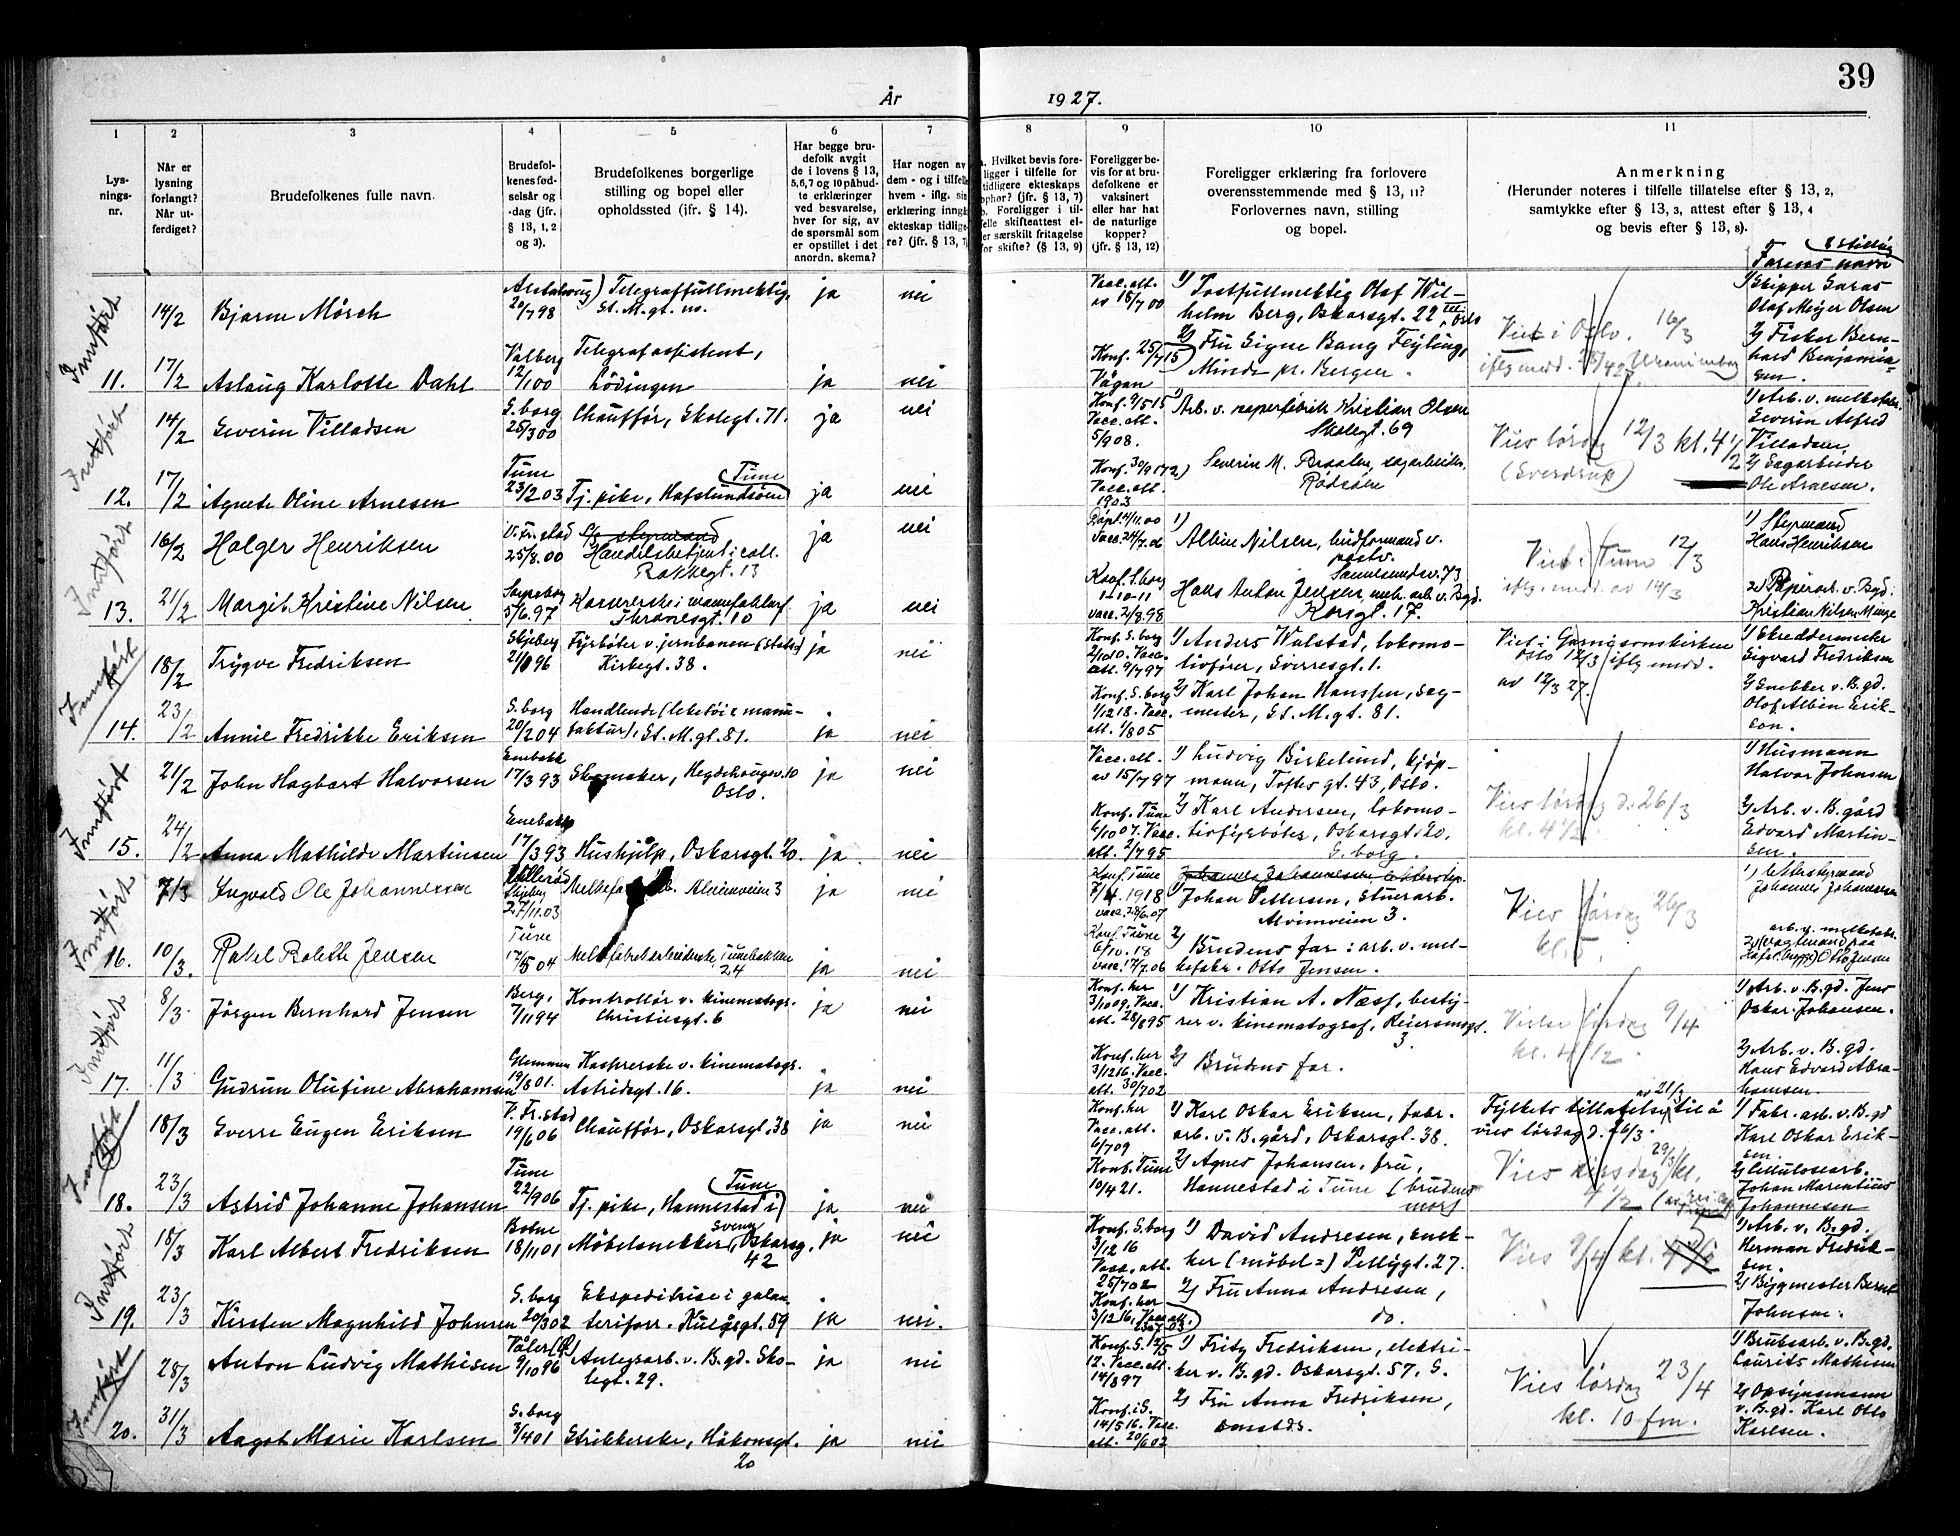 39
År 1927.
1 2 3 4 5 6 7 8 9 10 11
Lys-
nings-
nr.
Når er
lysning
forlangt?
Når ut-
ferdiget?
Brudefolkenes fulle navn.
Brudefol-
kenes fød-
selsår og
-dag (jfr.
§ 13, 1, 2
og 3).
Brudefolkenes borgerlige
stilling og bopel eller
opholdssted (jfr. § 14).
Har begge bru-
defolk avgit
de i lovens § 13,
5,6,7 og 10 påbud-
te erklæringer
ved besvarelse,
hver for sig, av
de spørsmål som
er opstillet i det
anordn. skema?
Har nogen av
dem - og i tilfelle
hvem - iflg. sin
erklæring inngå
ekteskap tidlige
re? (jfr. § 13, 7
a. Hvilket bevis fore-
ligger i tilfelle for
tidligere ekteskaps
ophør? (jfr. § 13, 7)
b. Foreligger i til-
felle skifteattest el-
ler særskilt fritagelse
for skifte? (§ 13, 9)
Foreligger be-
vis for at bru-
defolkene er
vaksinert
eller har hat
de naturlige
kopper?
(jfr. § 13, 12)
Foreligger erklæring fra forlovere
overensstemmende med § 13, 11?
Forlovernes navn, stilling
og bopel.
Anmerkning
(Herunder noteres i tilfelle tillatelse efter § 13, 2,
samtykke efter § 13, 3, attest efter § 13, 4
og bevis efter § 13, 8).
Farens navn
& stilling
Innført
14/2 Bjarne Mörch 20/7 98 Telegraffullmektig, St. M. gt. no. ja nei
Vacc. att. av 15/7 00
1) Postfullmektig Olaf Wil-
helm Berg, Oskarsgt. 22 III, Oslo
Viet i Oslo. 16/3
1) Skipper Garas
Olaf Meyer Olsen
11. 17/2 Aslaug Karlotte Dahl Valberg 12/1 00 Telegrafassistent, Lödingen ja nei
Konf. 25/7 15 Vågan
2) Fru Signe Bang Fejling,
Minde pr. Bergen.
2) Fisker Bern-
hard Benjamin-
sen.
Innført
14/2 Severin Villadsen S. borg 25/3 00 Chauffør, Skolegt. 71. ja nei
Konf. 9/5 15 Vacc. att. 5/9 08.
1) Arb. v. papirfabrik Kristian Olsen
Skolegt. 69
Vies lørdag 12/3 kl. 4 1/2
(Sverdrup)
Villadsen,
12. 17/2 Agnete Oline Arnesen Tune 23/2 03 Tj. pike, Hafslundsöen Tune ja nei
Vacc. att. 1903
Severin M. Braaten, sagarbeider
Rödsöen
2) Sagarbeider
Ole Arnesen.
Innført
16/2 Holger Henriksen 25/8.00 Handelsbetjent i coll. Rakkegt. 13 ja nei
Albin Nilsen, budformand v.
postv.
Sannesundsv. 73
Viet i Tune 12/3
iflg. medd. av 14/3
1) Styrmand
Hans Henriksen
13. 21/2 Margit Kristine Nilsen Sarpsborg 5/6.97 Thranesgt. 10 ja nei
Konf. S. borg 1-10-11 vacc. 2/8.98
Hans Anton Jensen, melk. arb. v. Bgd.
Korsgt. 17.
2) Papirarb. v. Bgd:
Kristian Nilsen Munge
Innført
18/2 Trygve Fredriksen Skjeberg Fyrbøter v. jernbanen (Stats) Kirkegt. 38. ja nei
Konf. S. borg 2/10 10. Vacc. att. 9/7 97
1) Anders Walstad, lokomo-
tivfører, Sverresgt. 1.
Viet i Garnisonskirken
Oslo 12/3 iflg medd.
av 12/3 27.
1) Skreddermester
Sigvard Fredriksen
14. 23/2 Annie Fredrikke Eriksen S. borg 20/2 04 Handlende (leketøi & manu-
faktur), St. M. gt. 81. ja nei
Konf. S. borg 1/12 18. Vacc. att. 1/8 05
2) Karl Johan Hanssen, sag-
mester, St. M. gt. 81.
2) Snekker v. B. gd.
Olof Albin Erik-
sen.
Innført
21/2 John Hagbart Halvorsen Enebakk 17/3 93 Skomaker, Hegdehaugsv. 10 Oslo. ja nei
Vacc. att. av 15/7 97
1) Ludvig Birkelund, kjøp-
mann, Toftes gt. 43, Oslo.
Vies lørdag d. 26/3
kl. 4 1/2.
1) Husmann
Halvor Johnsen
15. 24/2 Anna Mathilde Martinsen Enebakk 17/3 93 Hushjelp, Oskarsgt. 20. ja. nei
Konf. Tune 6/10 07. Vacc. att. 2/7 95
2) Karl Andersen, lokomo-
tivfyrbøter, Oskarsgt. 20,
S. borg.
2) Arb. v. B. gård
Edvard Martin-
sen.
Innført
7/3 Ingvald Ole Johannessen Skjeberg 27/11.03 Alvimveien 3 ja nei
Konf. Tune 1918
1) Johan Pettersen, stuerarb.
Alvimveien 3.
Vies lørdag 26/3
kl. 5.
Johannes Johannessen
16. 10/3. Rakel Bolette Jensen Tune 04 Melkefabrikarbeiderske, Tunebakken 24 ja nei
Konf. Tune 6/10.18 vacc. 17/7.06
2) Brudens far: arb. v. mel-
kefabr. Otto Jensen.
Otto Jensen
Innført
8/3. Jörgen Bernhard Jensen Berg, 7/11 94 Kontrollör v. kinematogr. Christiesgt. 6 ja nei
Konf. her 3/10 09. Vacc. att. 28/8 95
1) Kristian A. Næss, besty-
rer v. kinematograf, Reiersmogt.
3.
1) Arb. v. B. gd. Jens
Oskar Johansen.
17. 11/3 Gudrun Olufine Abrahamsen Glemmen 19/8 01. Kasserske v. kinematogr. Astridsgt. 16. ja nei
Konf. her 3/12 16. Vacc. att. 30/7 02
2) Brudens far.
2) Arb. v. B. gd.
Hans Edvard Abra-
hamsen.
Innført
18/3 Sverre Eugen Eriksen V. Fr. stad 19/6 06 Chauffør, Oskarsgt. 38 ja nei
Konf. her Vacc. att. 6/7 09
1) Karl Oskar Eriksen, fabr.
arb. v. B. gård, Oskarsgt. 38.
Fylkets tillatelse av 21/3 til å
vies lørdag d. 26/3.
1) Fabr. arb. v. B. gd
Karl Oskar Erik-
sen.
18. 23/3 Astrid Johanne Johansen Tune 22/9 06 Tj. pike, Hannestad i Tune ja nei
Konf. Tune 10/4 21.
2) Agnes Johansen, fru,
Hannestad i Tune (brudens
mor)
Vies tirsdag 29/3 kl.
2) Cellulosearb.
Johan Marentius
Johannesen
Innført
18/3 Karl Albert Fredriksen Botne 18/11 01 Möbelsnekker svenn, Oskarsg. 42 ja nei
Konf. S. borg 3/12 16 Vacc. att. 25/7 02
1) David Andresen, snek-
ker (möbel=) Pellygt. 27.
Vies 9/4 kl. 5
1) Arb. v. B. gd.
Herman Fredrik-
sen.
19. 23/3 Kirsten Magnhild Johnsen S. borg 20/3 02 Ekspeditrise i galan-
teriforr. Kulåsgt. 59 ja nei.
Konf. her 3/12 16.
2) Fru Anna Andresen,
do.
2) Bygmester Bernt
Johnsen.
Innført
28/3 Anton Ludvig Mathisen Våler 9/10 96 Anlegsarb. v. B. gd. Sko-
legt. 29. ja nei
Konf. S. 12. Vacc. att. 14/8 97
1) Fritz Fredriksen, elektri-
ker v. B. gd. Oskarsgt. 57, S.
Vies lørdag 23/4
kl. 10 fm.
1) Brutsarb. v. B. gd.
Laurits Mathisen
20. 31/3 Aagot Marie Karlsen S. borg 3/4 01 Strikkerske, Håkonsgt. 20 ja nei
Konf. i S. 14/5 16. Vacc. att. 20/6 02
2) Fru Anna Fredriksen,
2) Opsynsmann
v. B. gd. Karl Otto
Karlsen.